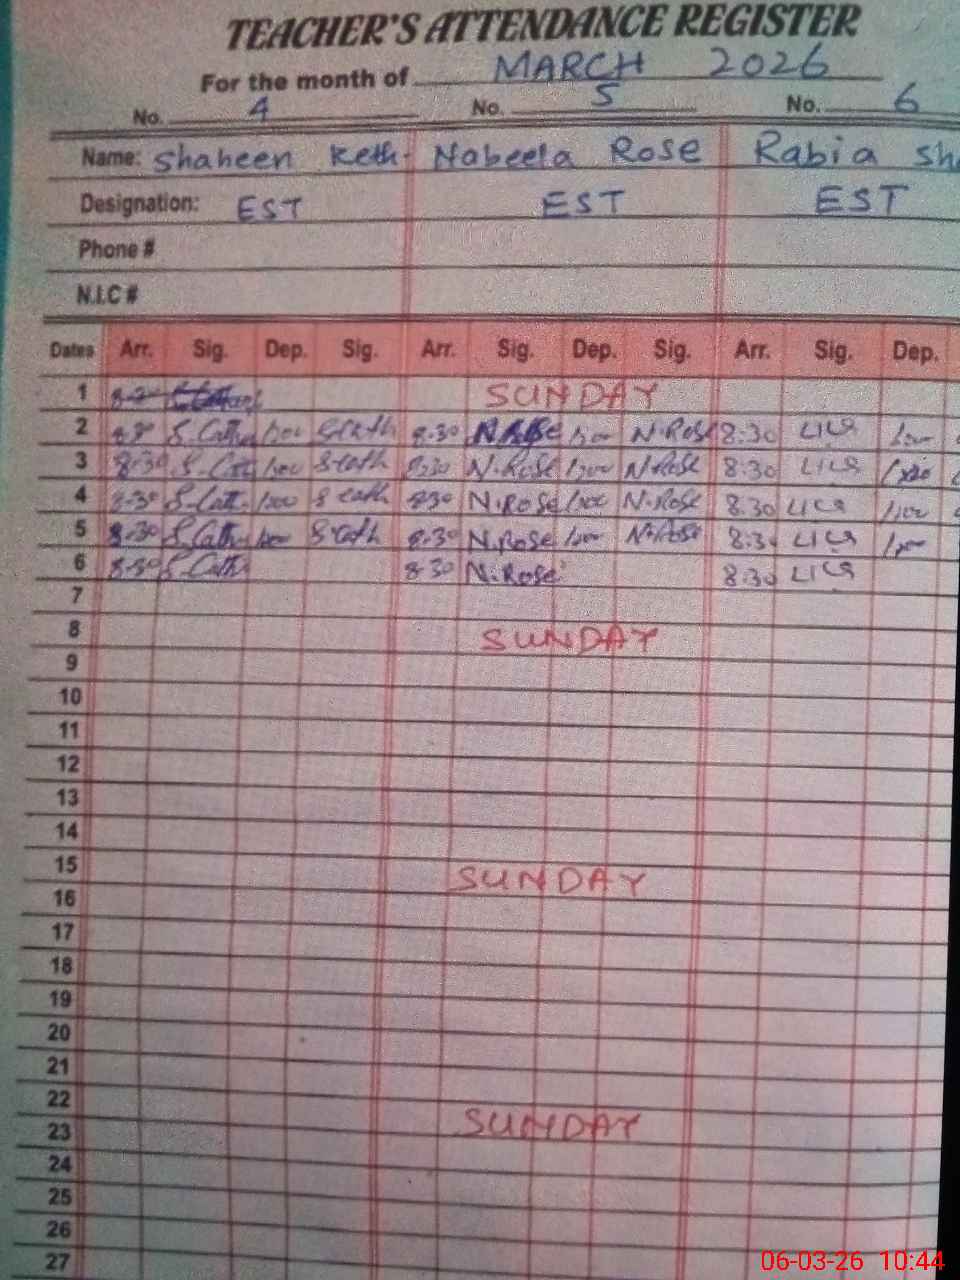 TEACHER'S ATTENDANCE REGISTER
For the month of MARCH 2026
No. 4 No. 5 No. 6
Name: Shaheen Keth. Nabeela Rose Rabia Sh
Designation: EST EST EST
Phone #
N.I.C #
Dates Arr. Sig. Dep. Sig. Arr. Sig. Dep. Sig. Arr. Sig. Dep.
1 SUNDAY
2 8.30 S.Cath 1:00 8.30 1:00 N.Rose 8:30 1:00
3 8.30 1:00 8.30 N.Rose 1:00 N.Rose 8:30
4 8.30 S.Cath 1:00 8.30 N.Rose 1:00 N.Rose 8.30 1:00
5 8.30 S.Cath 8.30 N.Rose 1:00 N.Rose 8:30
6 8.30 S.Cath 8.30 N.Rose 8:30
7
8 SUNDAY
9
10
11
12
13
14
15 SUNDAY
16
17
18
19
20
21
22 SUNDAY
23
24
25
26
27
06-03-26 10:44